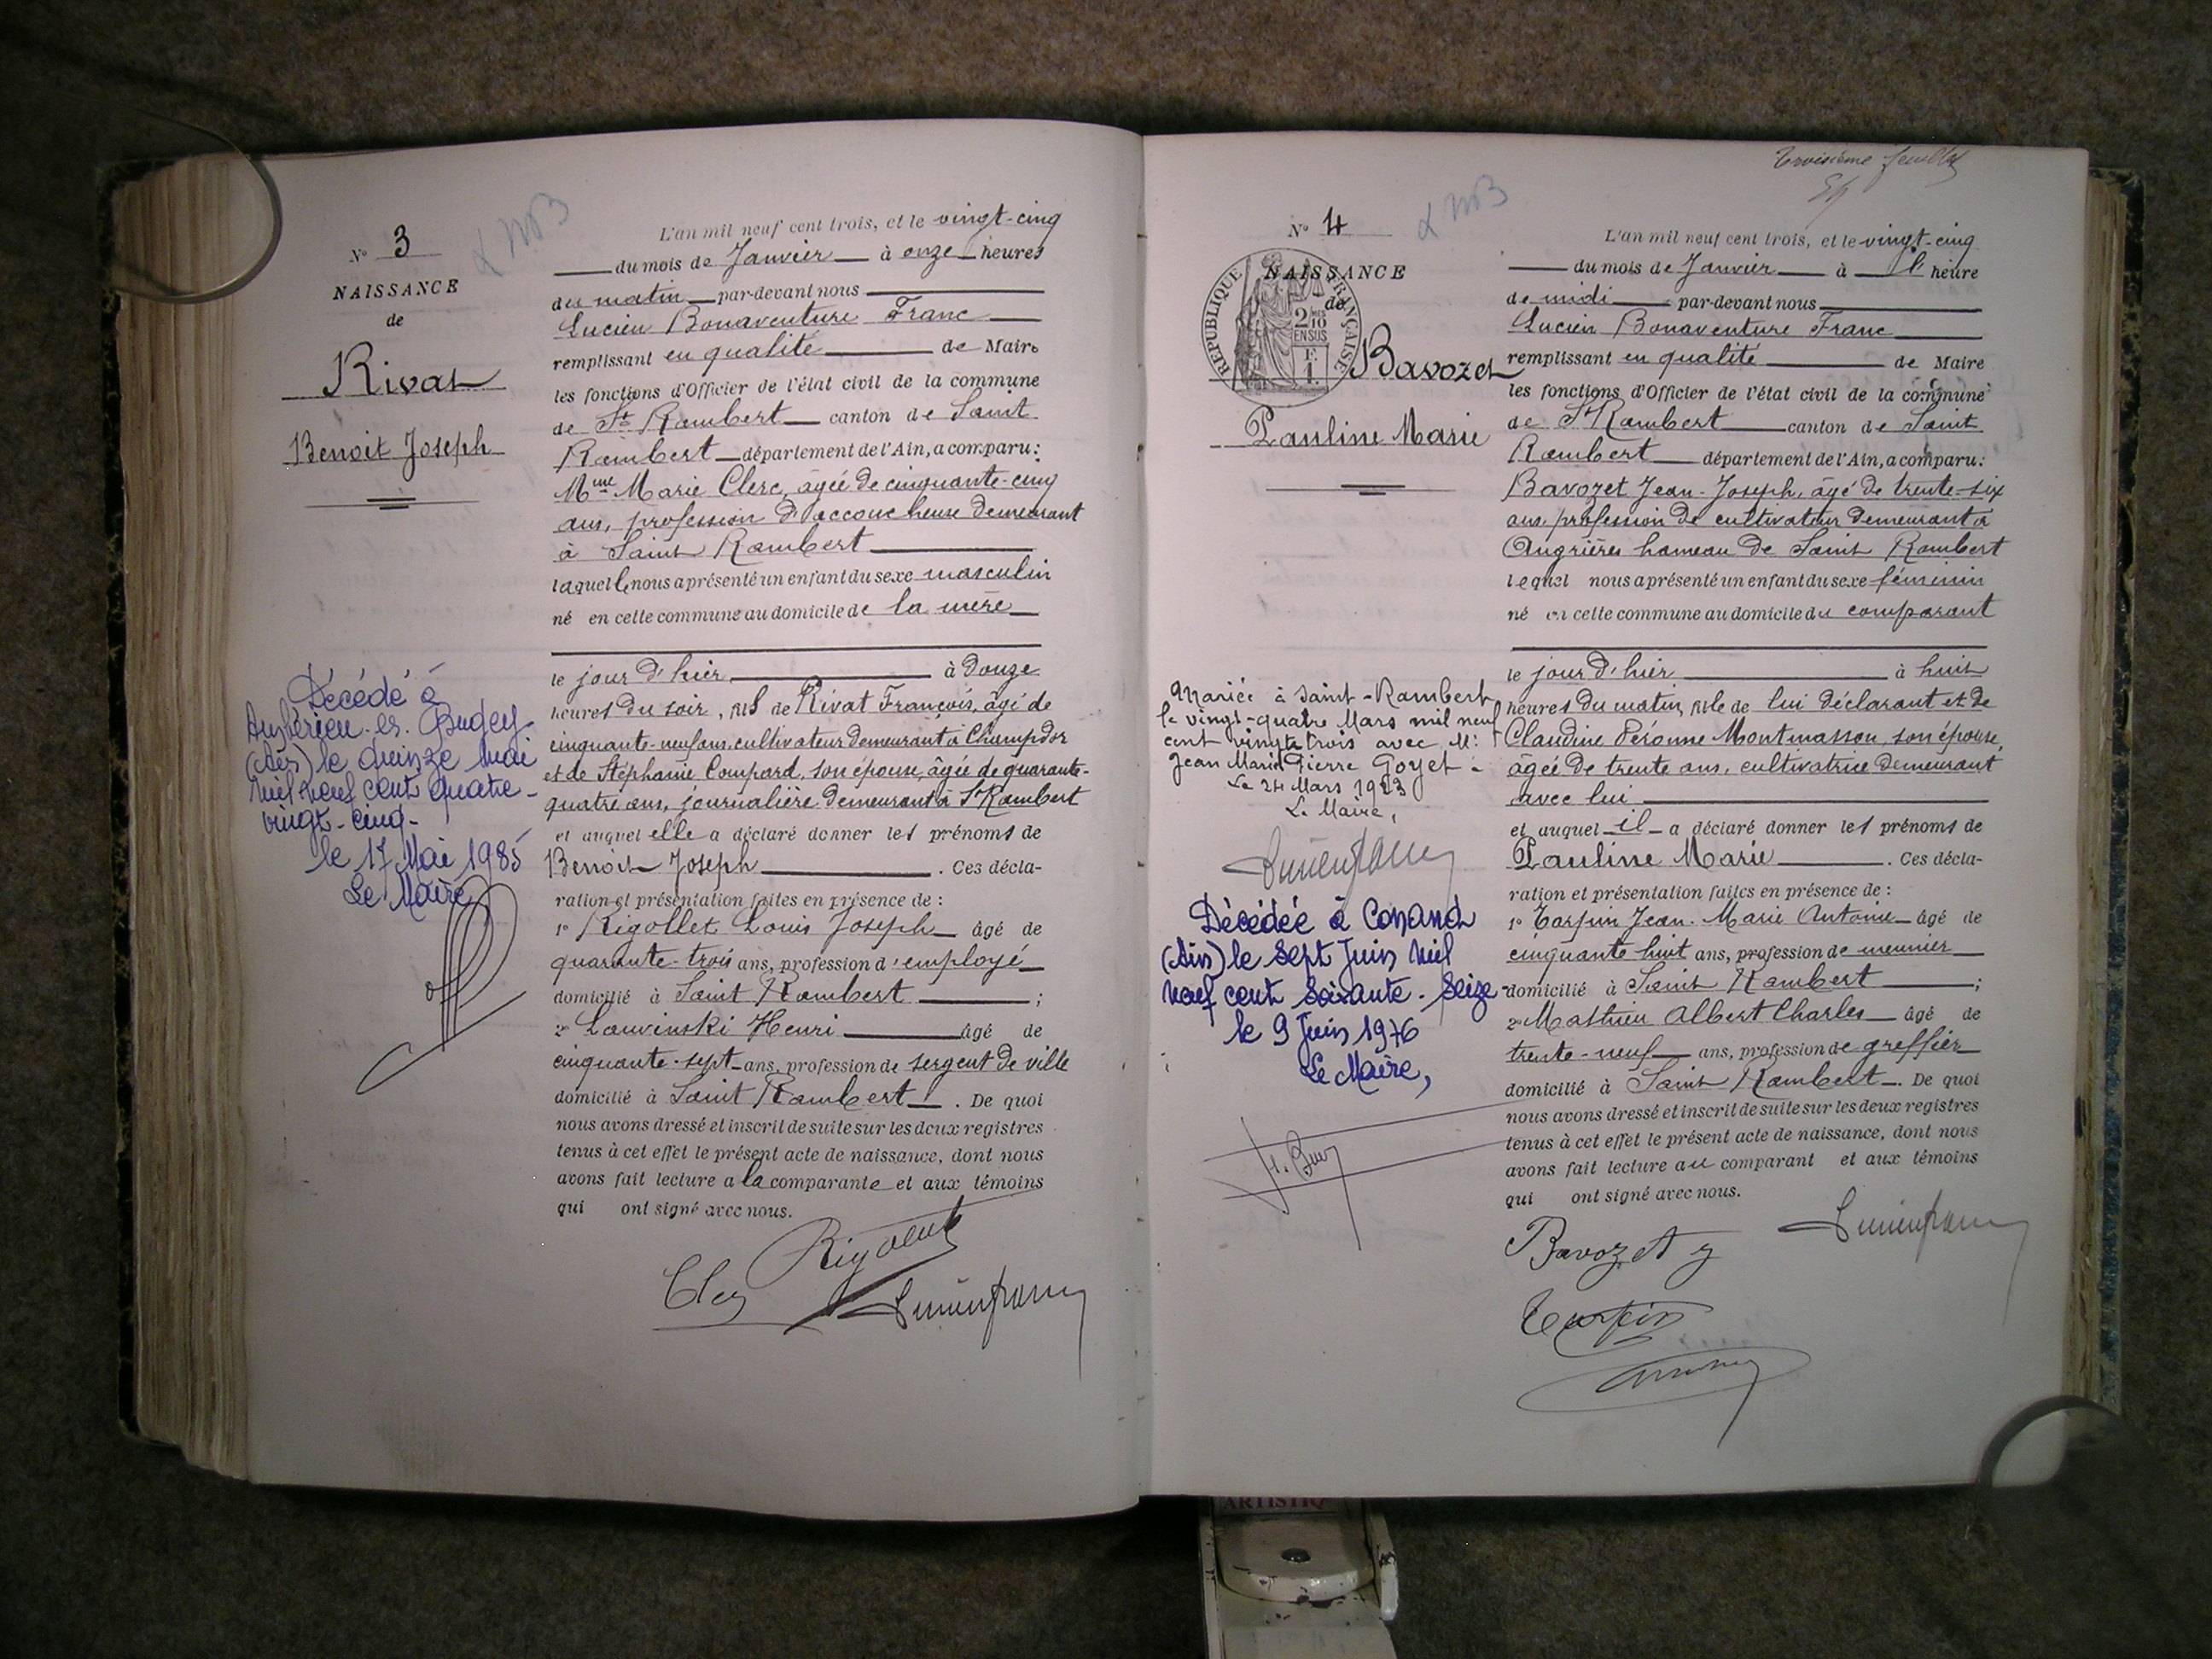 N° 3
NAISSANCE
de
Rivat
Benoit Joseph
L'an mil neuf cent trois, et le vingt-cinq
du mois de Janvier à onze heures
du matin par-devant nous
Lucien Bonaventure Franc
remplissant en qualité de Maire
les fonctions d'Officier de l'état civil de la commune
de St Rambert canton de Saint
Rambert département de l'Ain, a comparu:
Mme Marie Clerc, âgée de cinquante-cinq
ans, profession d'accoucheuse demeurant
à Saint Rambert
laquelle nous a présenté un enfant du sexe masculin
né en cette commune au domicile de la mère
le jour d'hier à douze
heures du soir, fils de Rivat François, âgé de
cinquante-neuf ans, cultivateur demeurant à Champdor
et de Stéphanie Compard, son épouse, âgée de quarante-
quatre ans, journalière demeurant à St Rambert
et auquel elle a déclaré donner les prénoms de
Benoit Joseph . Ces décla-
ration et présentation faites en présence de :
1° Rigollet Louis Joseph âgé de
quarante-trois ans, profession d'employé
domicilié à Saint Rambert ;
2° Lauvinski Henri âgé de
cinquante-sept ans, profession de sergent de ville
domicilié à Saint Rambert . De quoi
nous avons dressé et inscrit de suite sur les deux registres
tenus à cet effet le présent acte de naissance, dont nous
avons fait lecture a la comparante et aux témoins
qui ont signé avec nous.
Décédé à
Ambérieu-en-Bugey
(Ain) le quinze Mai
mil neuf cent quatre-
vingt-cinq-
le 17 Mai 1985
Le Maire
Troisième feuillet
N° 4
NAISSANCE
de
RÉPUBLIQUE FRANÇAISE
2/10
EN SUS
Bavozet
Pauline Marie
L'an mil neuf cent trois, et le vingt-cinq
du mois de Janvier à l' heure
de midi par-devant nous
Lucien Bonaventure Franc
remplissant en qualité de Maire
les fonctions d'Officier de l'état civil de la commune
de St Rambert canton de Saint
Rambert département de l'Ain, a comparu:
Bavozet Jean-Joseph, âgé de trente-six
ans, profession de cultivateur demeurant à
Angrières hameau de Saint Rambert
lequel nous a présenté un enfant du sexe féminin
né en cette commune au domicile du comparant
le jour d'hier à huit
heures du matin, fille de lui déclarant et de
Claudine Péronne Montmasson, son épouse,
âgée de trente ans, cultivatrice demeurant
avec lui
et auquel il a déclaré donner les prénoms de
Pauline Marie . Ces décla-
ration et présentation faites en présence de :
1° Tarpin Jean-Marie Antoine âgé de
cinquante huit ans, profession de meunier
domicilié à Saint Rambert ;
2° Mathieu Albert Charles âgé de
trente-neuf ans, profession de greffier
domicilié à Saint Rambert . De quoi
nous avons dressé et inscrit de suite sur les deux registres
tenus à cet effet le présent acte de naissance, dont nous
avons fait lecture au comparant et aux témoins
qui ont signé avec nous.
Bavozet
Tarpin
Mariée à Saint-Rambert
le vingt-quatre Mars mil neuf
cent vingt trois avec Mr
Jean Marie Pierre Goyet
Le 24 Mars 1923
Le Maire,
Décédée à Conand
(Ain) le sept Juin mil
neuf cent soixante-seize
le 9 Juin 1976
Le Maire,
ARTISTIQ